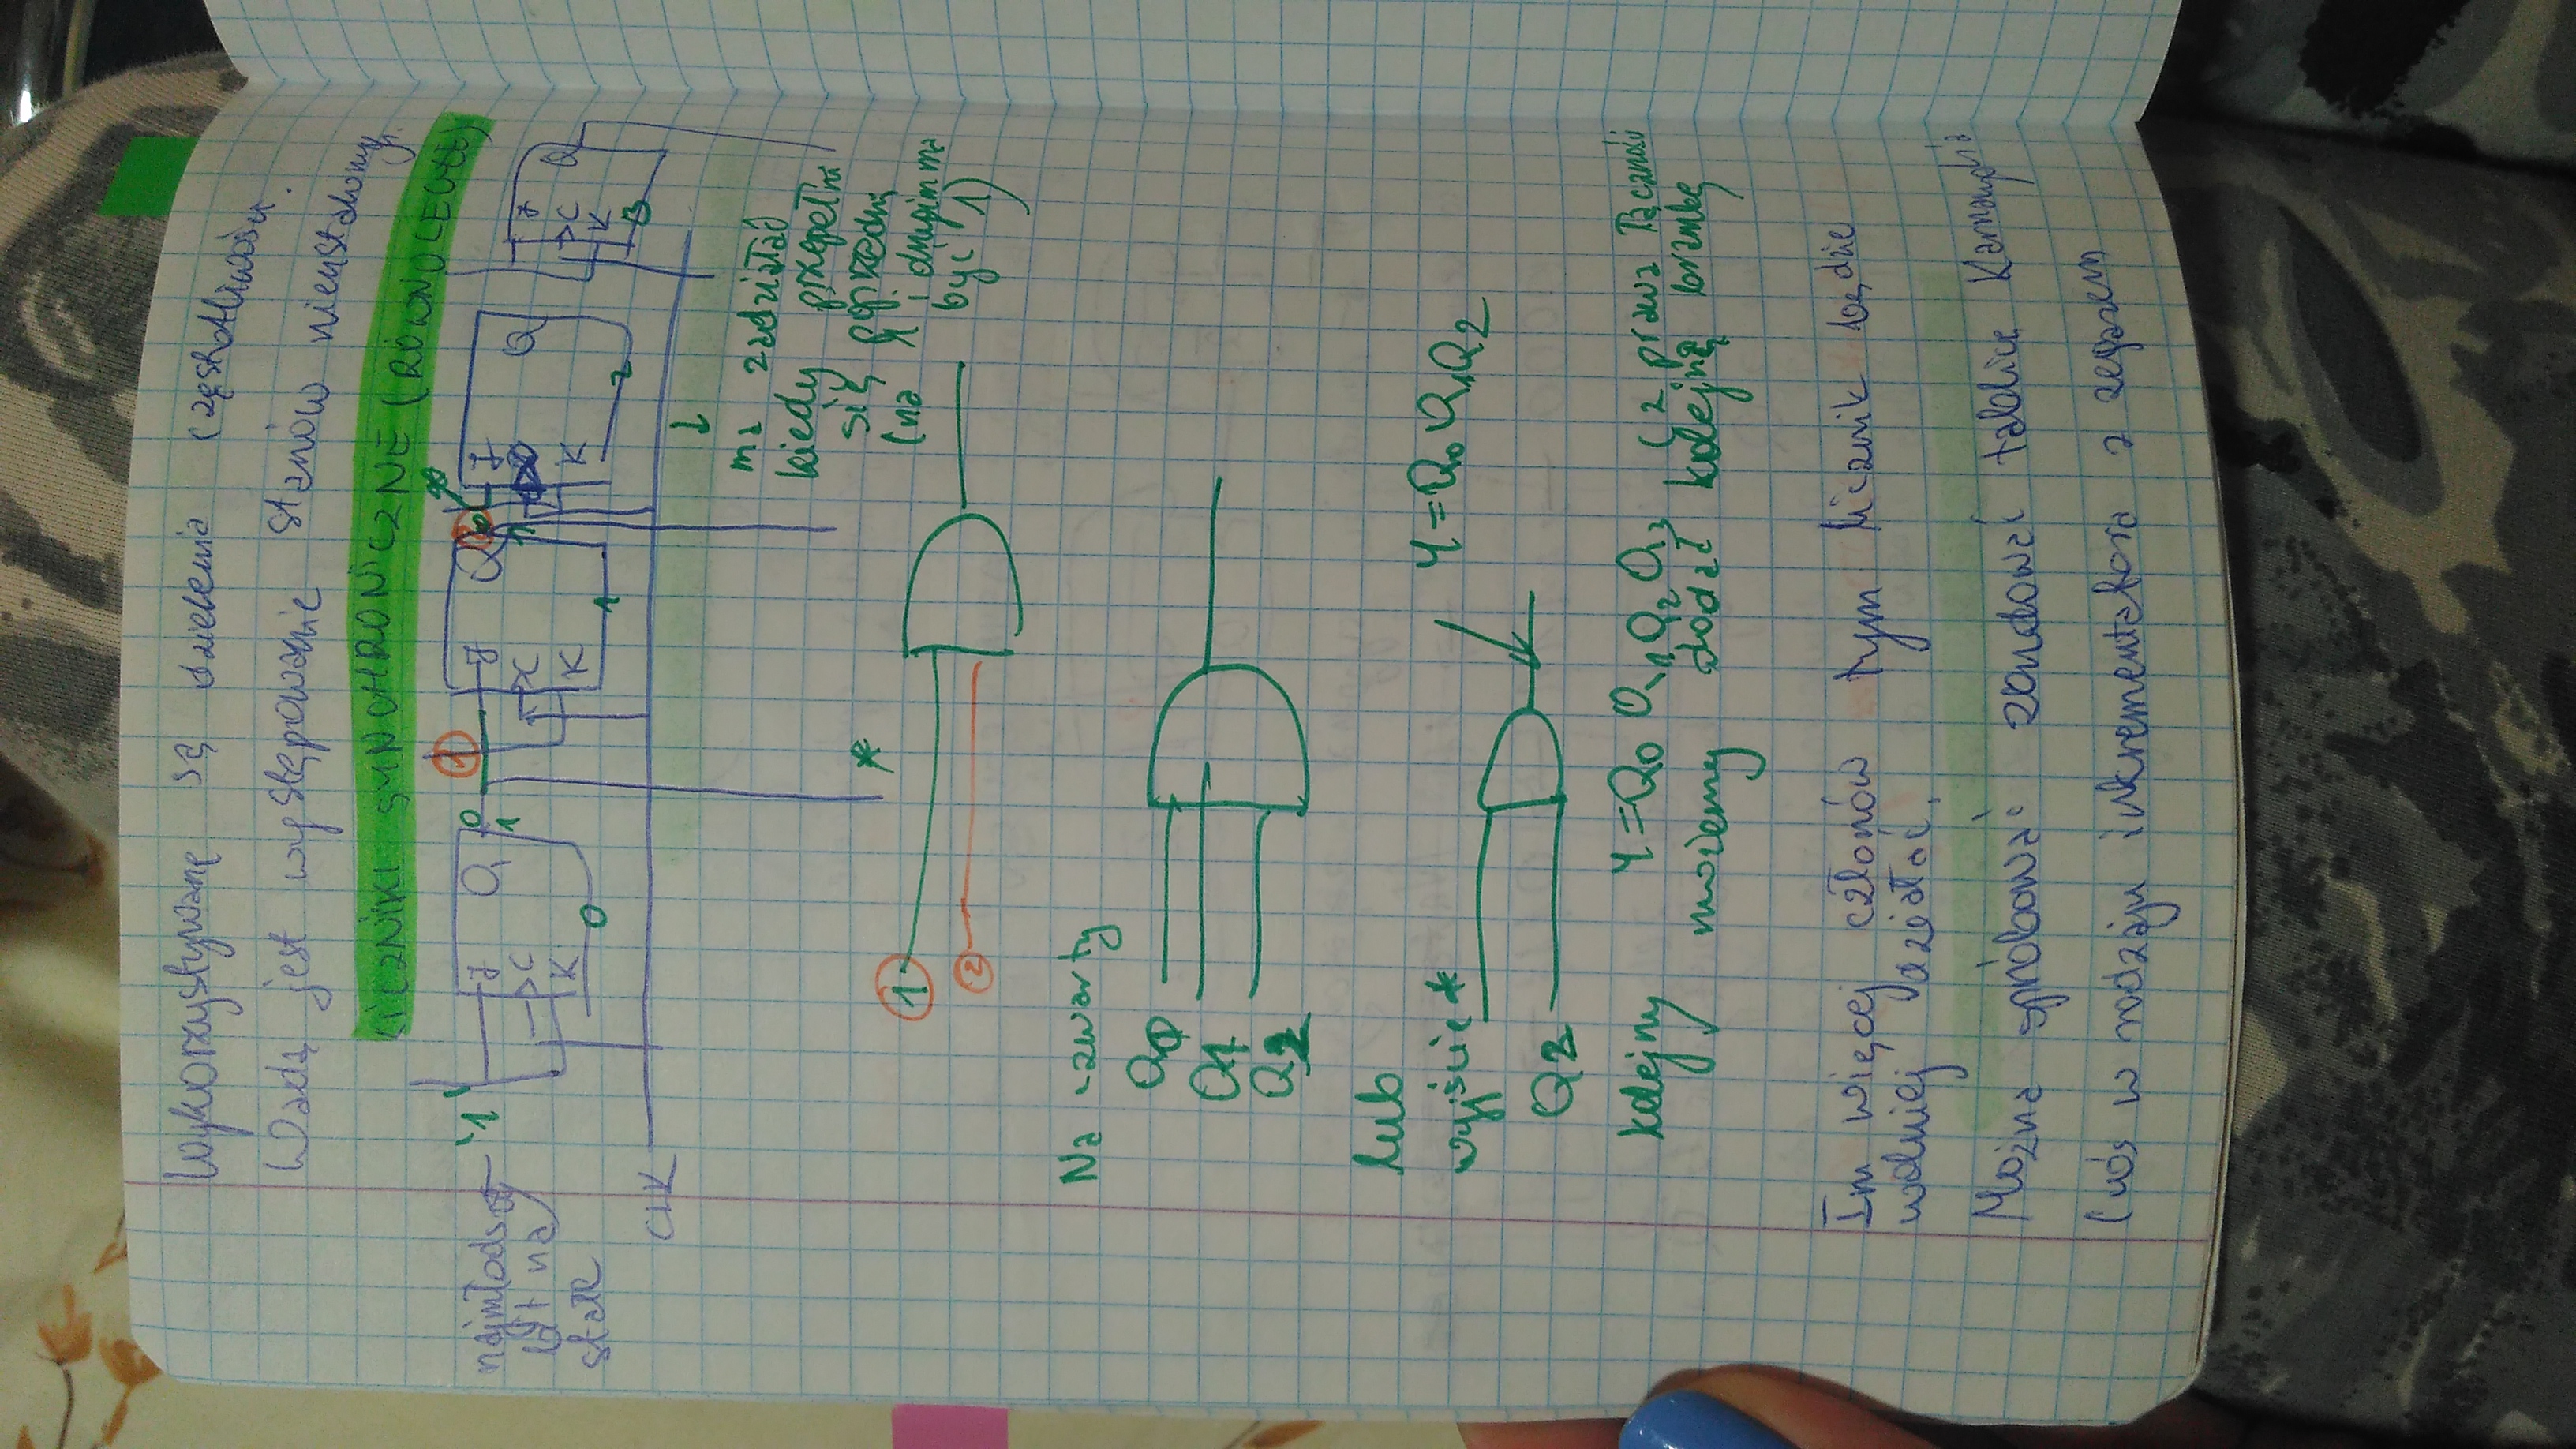 Wykorzystywane są dzielenia częstotliwości.
Wadą jest występowanie stanów nieustalonych.
LICZNIKI SYNCHRONICZNE (RÓWNOLEGŁY)
najmłodszy
bit na
stałe
'1'
J
C
K
Q
0
0
1
1
J
C
K
Q
1
2
1
J
K
Q
2
J
C
K
Q
3
CLK
↓
ma zadziałać
kiedy przepełni
się
(na i drugim ma
być 1)
*
1
2
Na czwarty
Q0
Q1
Q2
lub
wyjście *
Q2
Y = Q0 Q1 Q2
kolejny Y = Q0 Q1 Q2 Q3 (z prawa łączności
możemy dodać kolejną bramkę
Im więcej członów tym licznik będzie
wolniej działać.
Można spróbować zbudować tablicę Karnaugh'a
(coś w rodzaju inkrementatora z zegarem